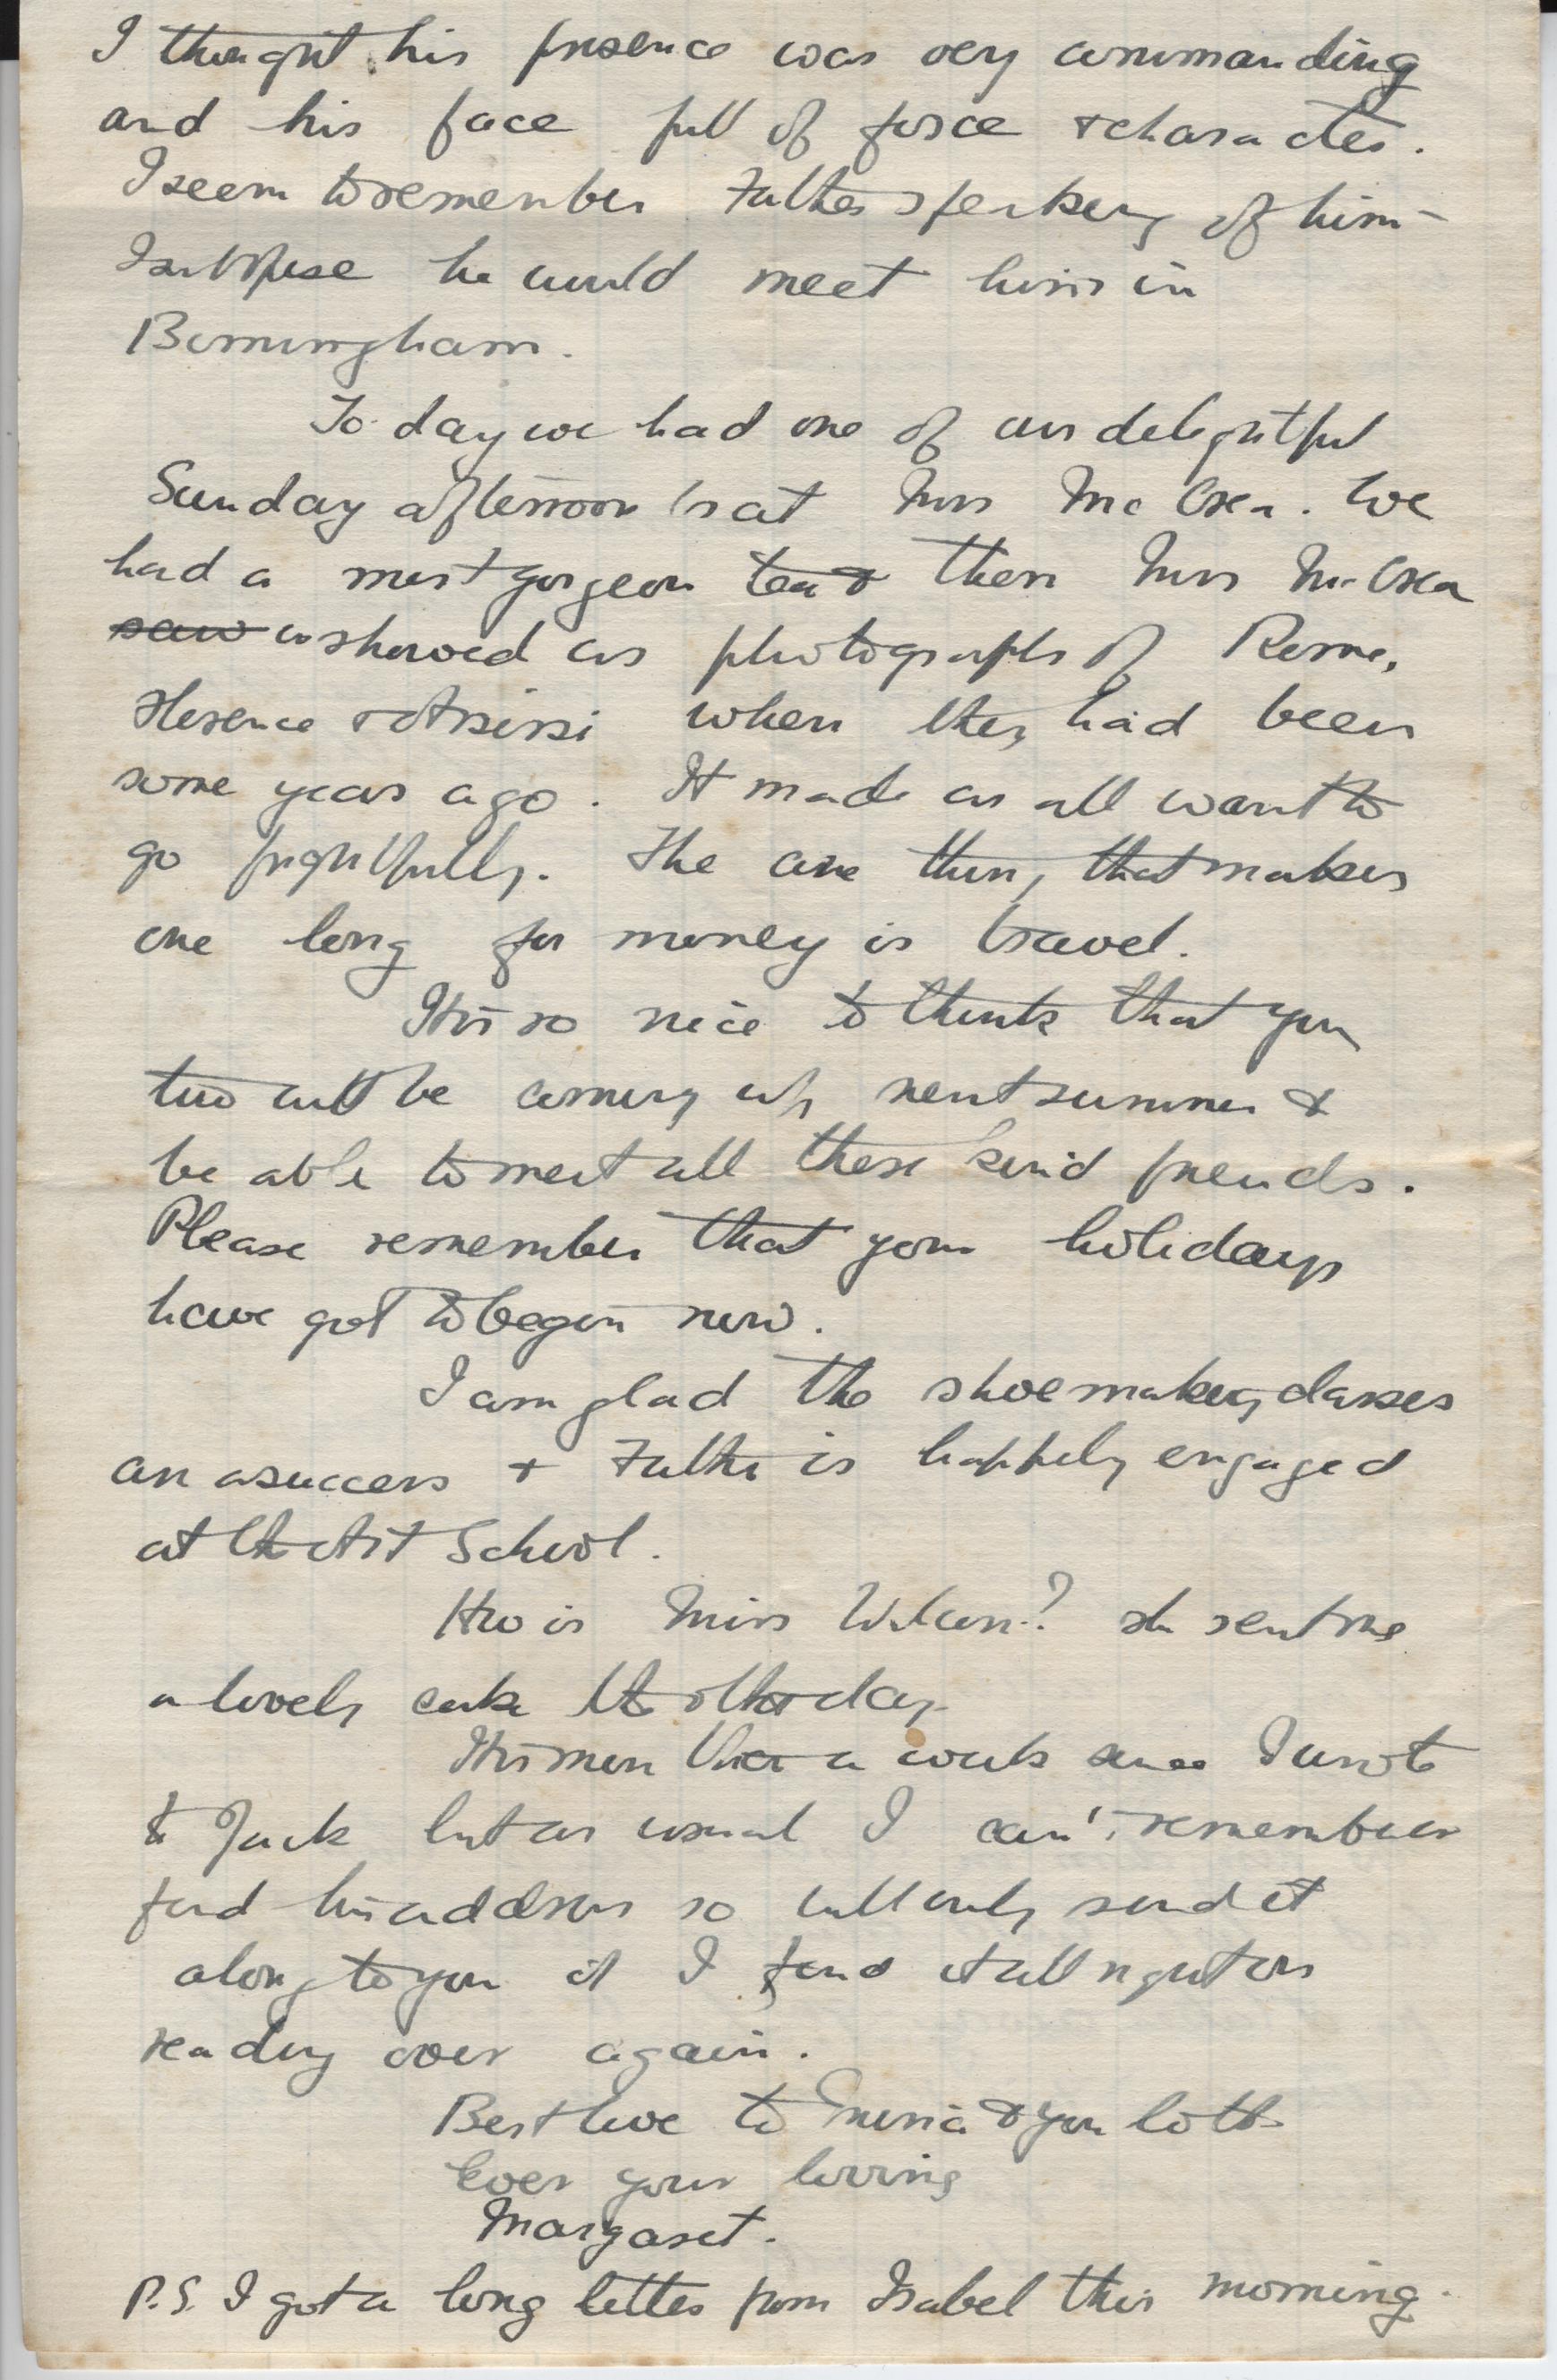 I thought his presence was very commanding
and his face full of force & character.
I seem to remember Father speaking of him -
I suppose he would meet him in
Birmingham.
To day we had one of our delightful
Sunday afternoons at Mrs McCrea. We
had a most gorgeous tea & then Mrs McCrea
saw showed us photographs of Rome,
Florence & Assisi when they had been
some years ago. It made us all want to
go frightfully. The one thing that makes
one long for money is travel.
It is so nice to think that you
two will be coming up next summer &
be able to meet all these kind friends.
Please remember that your holidays
have got to begin now.
I am glad the shoemaking classes
are a success & Father is happily engaged
at the Art School.
How is Miss Wilson? She sent me
a lovely cake the other day.
It is more than a week since I wrote
to Jack but as usual I can't remember
find his address so will only send it
along to you if I find it all right on
reading over again.
Best love to & you both
Ever your loving
Margaret.
P.S. I got a long letter from Isabel this morning.